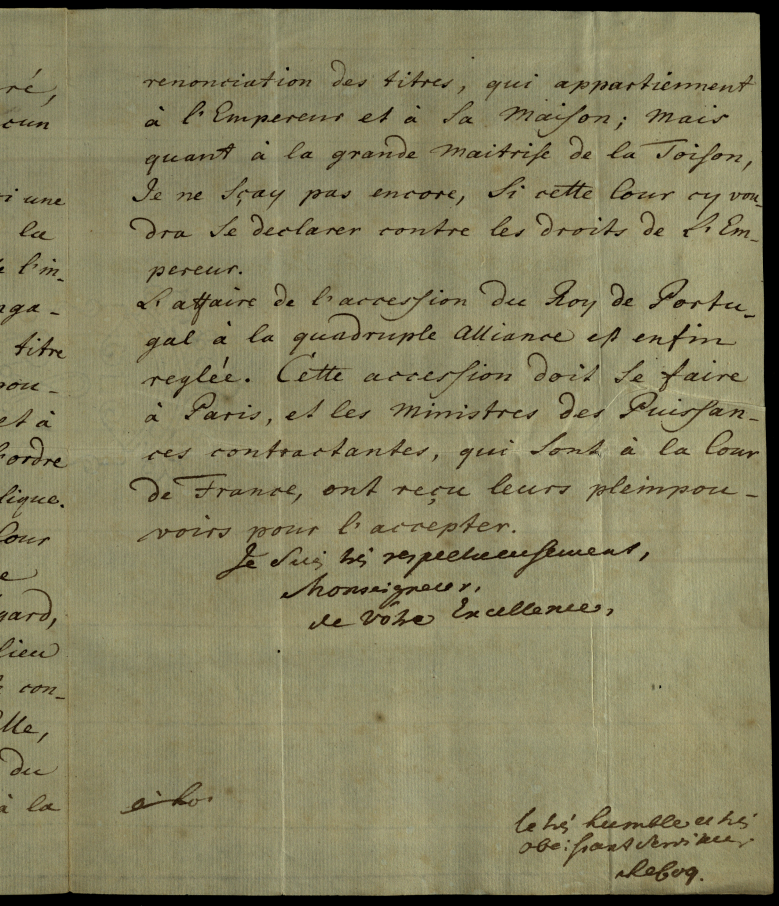 ré,
cun
i une
la
l'in-
nga-
titre
pou-
et à
l'ordre
lique.
Cour
e
gard,
lieu
con-
lle,
du
à la
renonciation des titres, qui appartiennent
à l'Empereur et à Sa Maison; Mais
quant à la grande Maitrise de la Toison,
Je ne sçay pas encore, Si cette Cour cy vou-
dra Se declarer contre les droits de L'Em-
pereur.
L'affaire de l'accession du Roy de Portu-
gal à la quadruple Alliance est enfin
reglée. Cette accession doit Se faire
à Paris, et les Ministres des Puissan-
ces contractantes, qui Sont à la Cour
de France, ont reçu leurs pleinpou-
voirs pour l'accepter.
Je Suis trés respectueusement,
Monseigneur,
de Vôtre Excellence,
le trés humble et trés
obeissant Serviteur